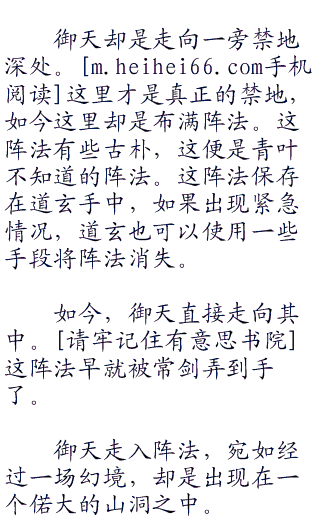 御天却是走向一旁禁地
深处。[m.heihei66.com手机
阅读]这里才是真正的禁地，
如今这里却是布满阵法。这
阵法有些古朴，这便是青叶
不知道的阵法。这阵法保存
在道玄手中，如果出现紧急
情况，道玄也可以使用一些
手段将阵法消失。
如今，御天直接走向其
中。[请牢记住有意思书院]
这阵法早就被常剑弄到手
了。
御天走入阵法，宛如经
过一场幻境，却是出现在一
个偌大的山洞之中。